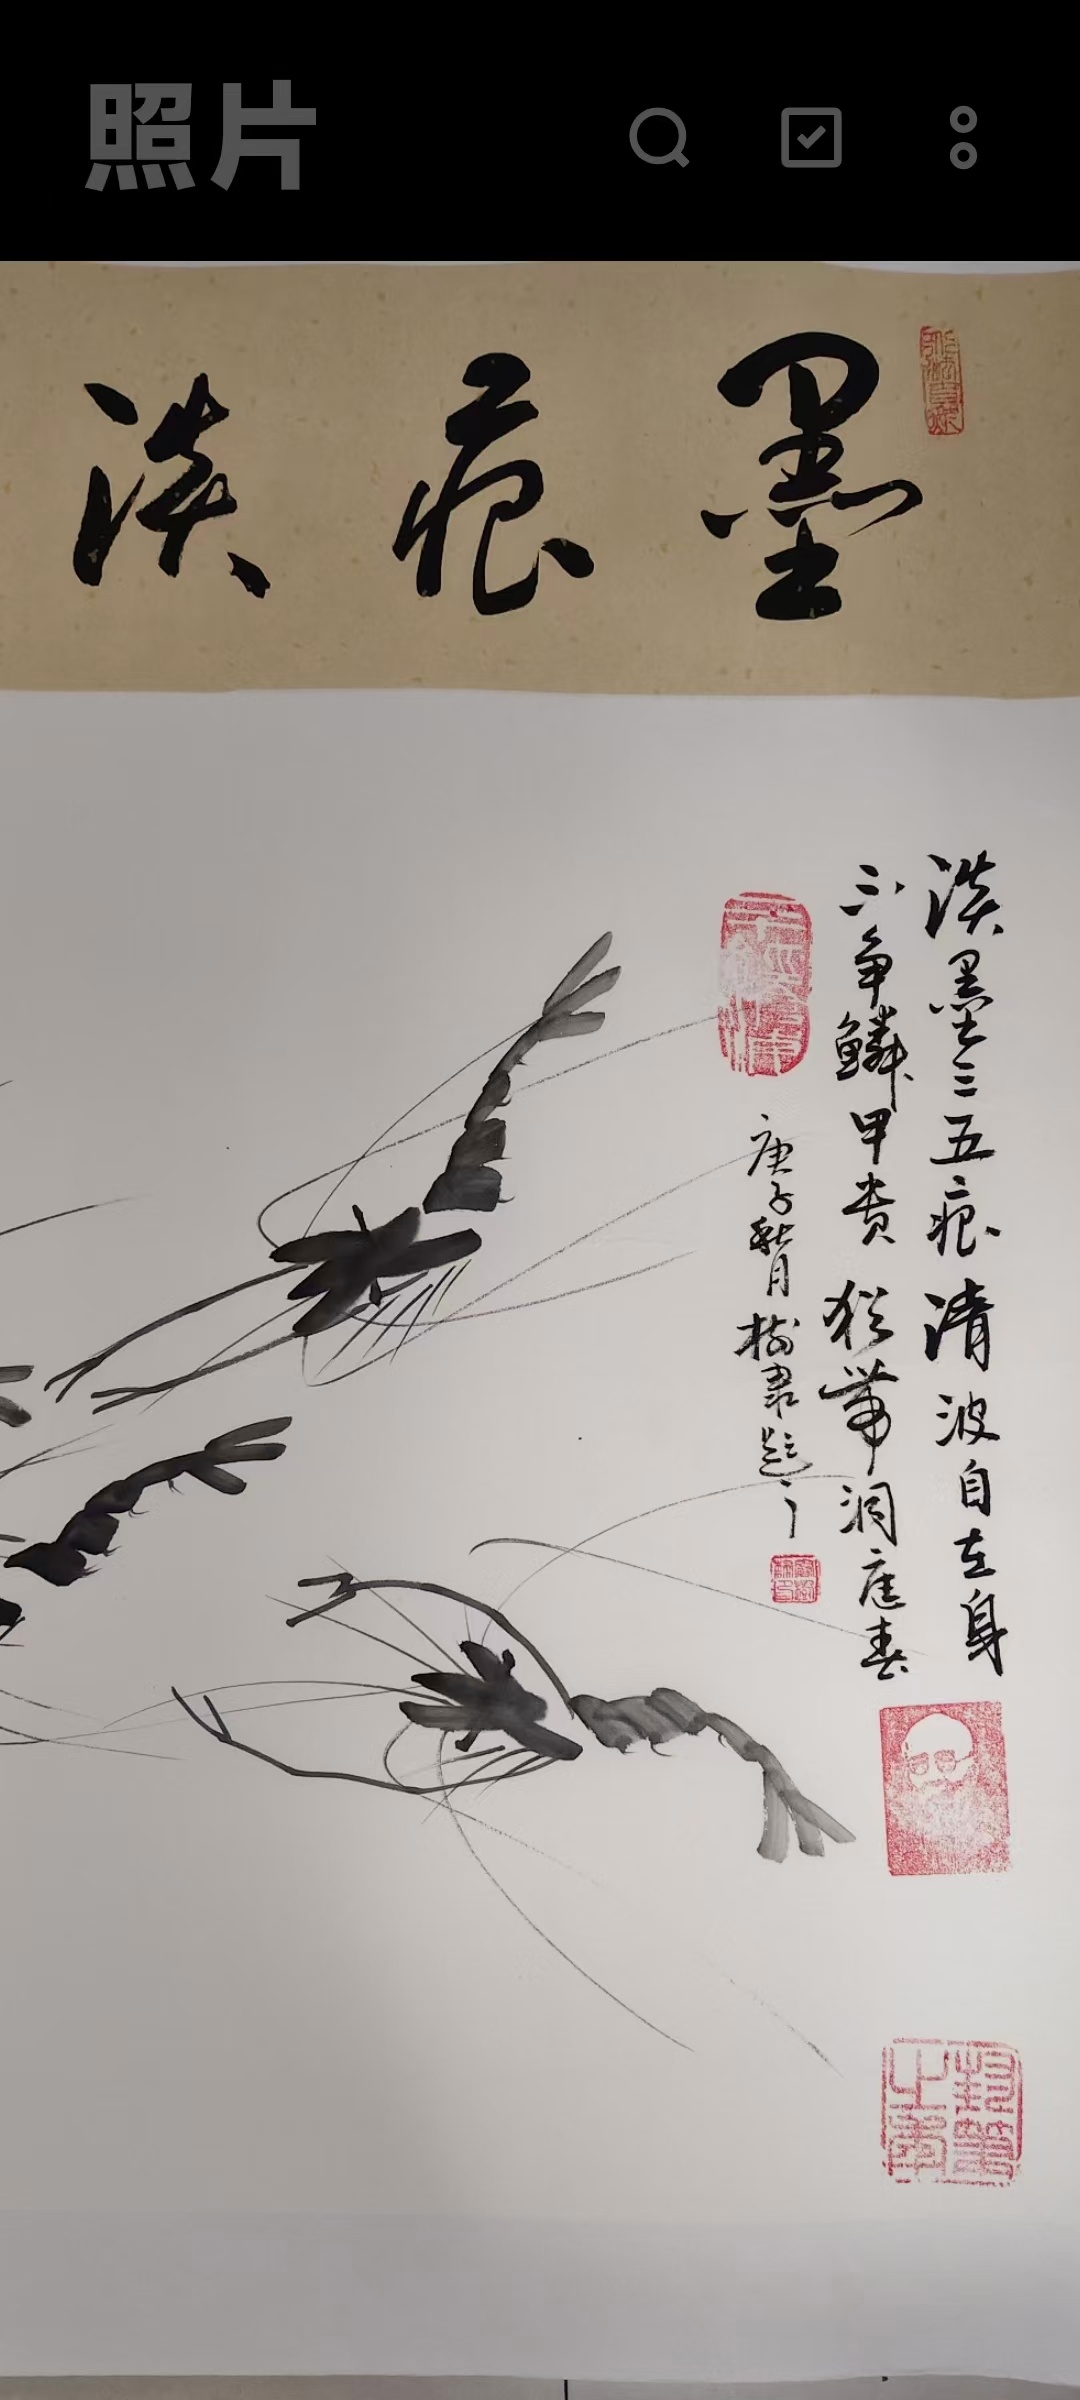 照片
墨痕淡
淡墨三五痕清波自在身
不争鳞甲贵犹带洞庭春
庚子秋月树题